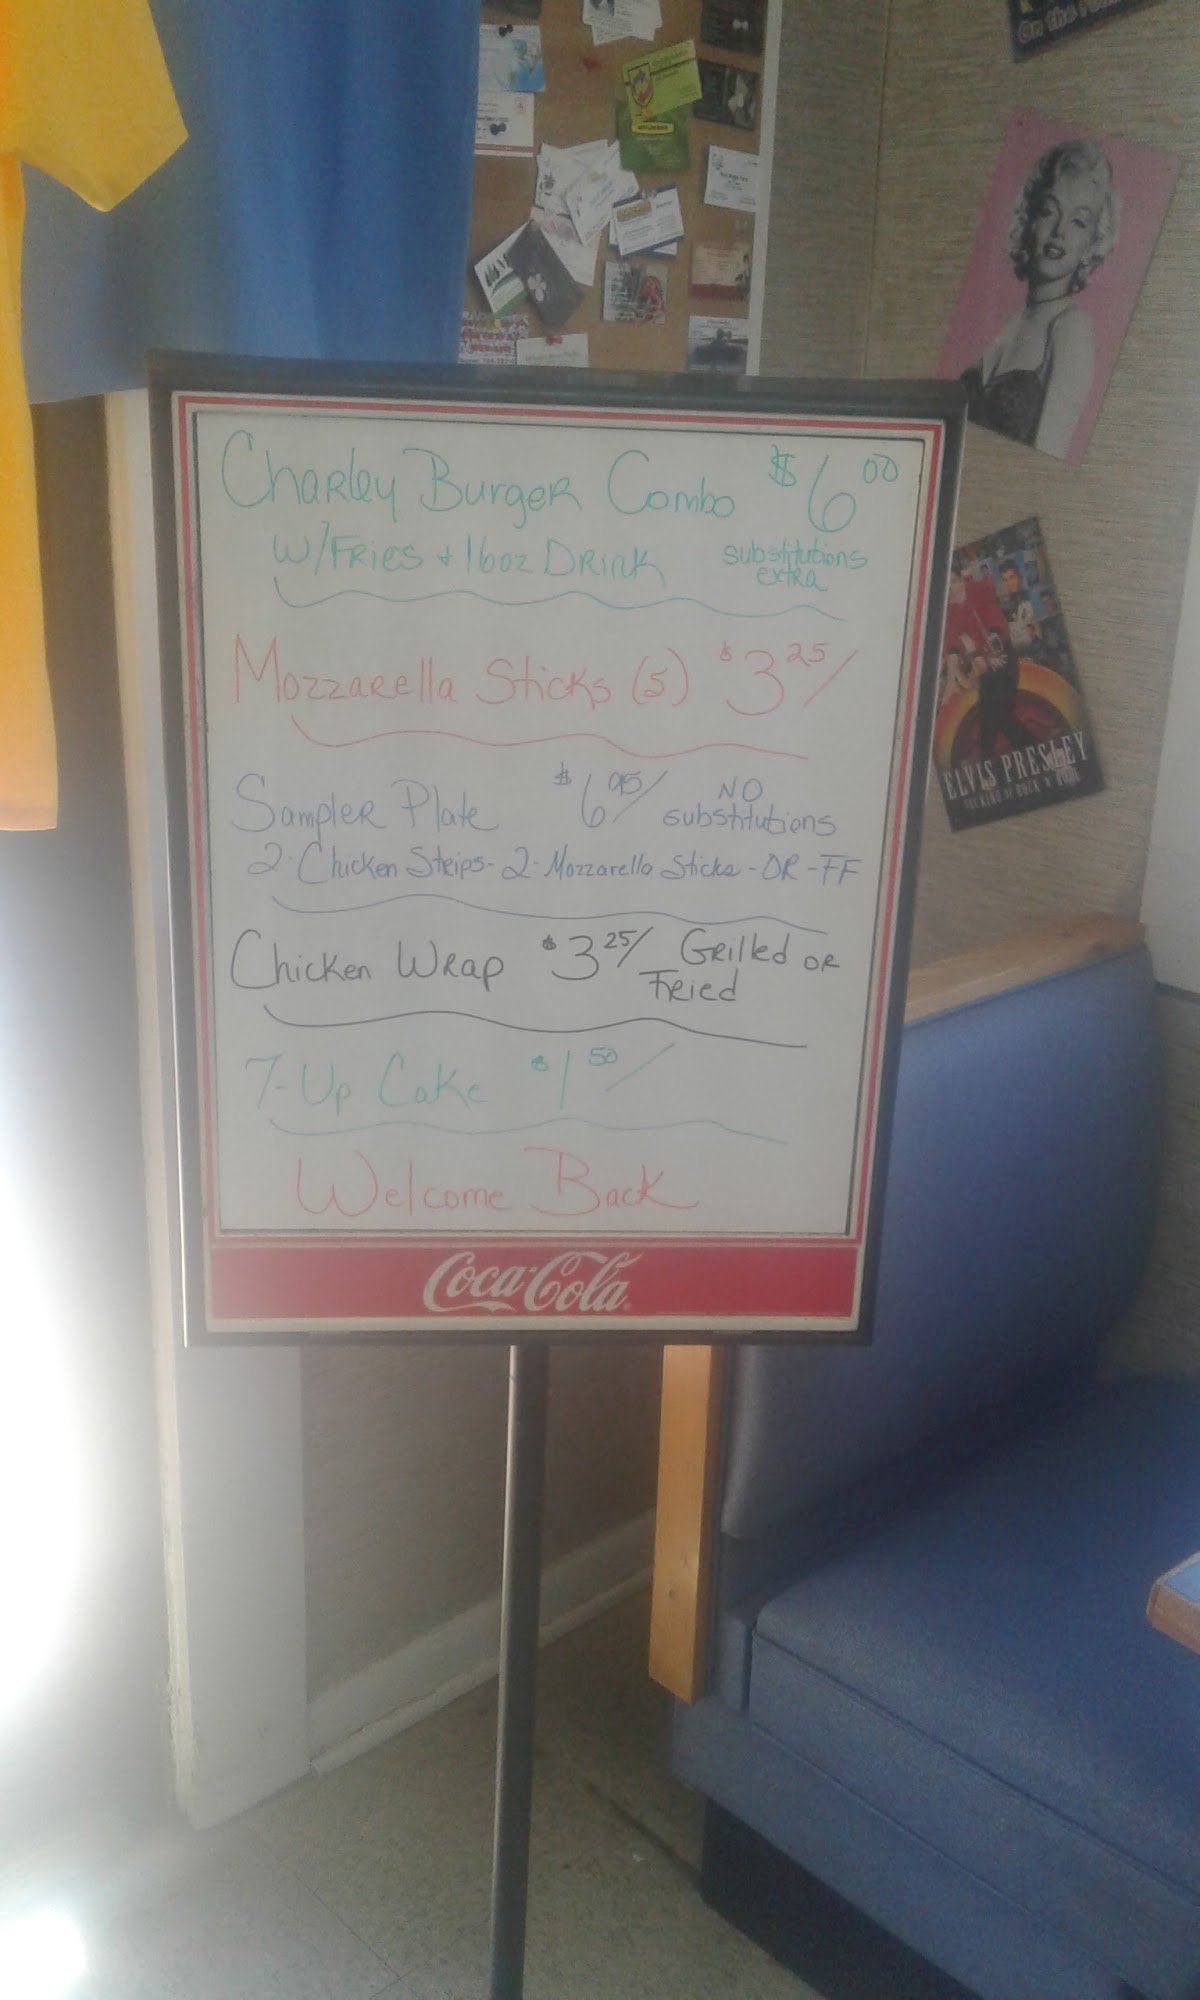 On the
Charley Burger Combo $6.00
w/Fries + 16oz Drink substitutions extra
Mozzarella Sticks (5) $3.25/
Sampler Plate $6.95/ NO substitutions
2-Chicken Strips-2-Mozzarella Sticks-OR-FF
Chicken Wrap $3.25/ Grilled or Fried
7-Up Cake $1.50/
Welcome Back
Coca-Cola
ELVIS PRESLEY
THE KING OF ROCK 'N' ROLL